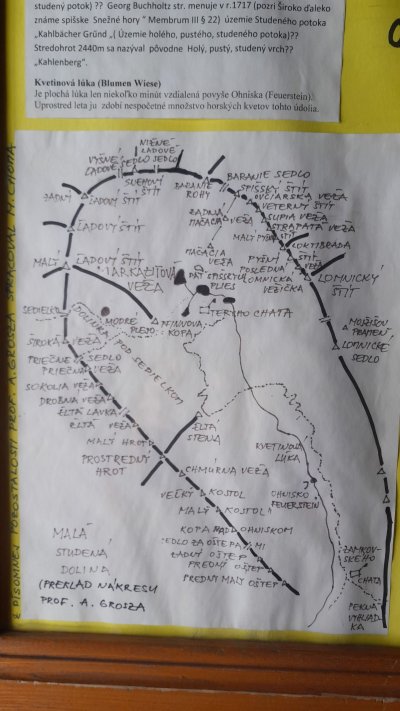 studený potok) ?? Georg Buchholtz str. menuje v r.1717 (pozri Široko ďaleko
známe spišske Snežné hory " Membrum III § 22) územie Studeného potoka
„Kahlbächer Grűnd „( Územie holého, pustého, studeného potoka)??
Stredohrot 2440m sa nazýval pôvodne Holý, pustý, studený vrch??
„Kahlenberg".
Kvetinová lúka (Blumen Wiese)
Je plochá lúka len niekoľko minút vzdialená povyše Ohniska (Feuerstein).
Uprostred leta ju zdobí nespočetné množstvo horských kvetov tohto údolia.
NIŽNÉ
ĽADOVÉ
SEDLO
VYŠNÉ
ĽADOVÉ SEDLO
SNEHOVÝ
ŠTÍT
BARANIE
ROHY
BARANIE SEDLO
SPIŠSKÝ ŠTÍT
OVČIARSKA VEŽA
VETERNÝ ŠTÍT
SUPIA VEŽA
STRAPATÁ VEŽA
ZADNÝ
ĽADOVÝ ŠTÍT
ZADNÁ
MAČACIA VEŽA
MALÝ PYŠNÝ
ŠTÍT
KORTIBRADA
ĽADOVÝ ŠTÍT
MAČACIA
VEŽA
PYŠNÝ
ŠTÍT
POSLEDNÁ
VEŽA
LOMNICKÁ
VEŽIČKA
LOMNICKÝ
ŠTÍT
MALÝ
ĽADOVÝ ŠTÍT
JARKAZUĽOVÁ
VEŽA
PÄŤ SPIŠSKÝCH
PLIES
TERYHO CHATA
SEDIELKO
MODRÉ
PLESO
KOPA
DOLINKA POD SEDIELKOM
LOMNICKÉ
SEDLO
ŠIROKÁ VEŽA
PRIEČNE SEDLO
PRIEČNA VEŽA
SOKOLIA VEŽA
DROBNÁ VEŽA
ŽLTÁ LÁVKA
ŽLTÁ VEŽA
ŽLTÁ
STENA
MALÝ HROT
PROSTREDNÝ
HROT
KVETINOVÁ
LÚKA
CHMÚRNA VEŽA
VEĽKÝ KOSTOL
MALÝ KOSTOL
OHNISKO
FEUERSTEIN
KOPA NAD OHNISKOM
SEDLO ZA OŠTEPAMI
ZADNÝ OŠTEP
PREDNÝ OŠTEP
PREDNÝ MALÝ OŠTEP
ZAMKOVSKÉHO
CHATA
PEKNÁ
VYHLIADKA
MALÁ
STUDENÁ
DOLINA
(PREKLAD NÁKRESU
PROF. A. GROSZA
Z PÍSOMNEJ POZOSTALOSTI PROF. A. GROSZA SPRACOVAL